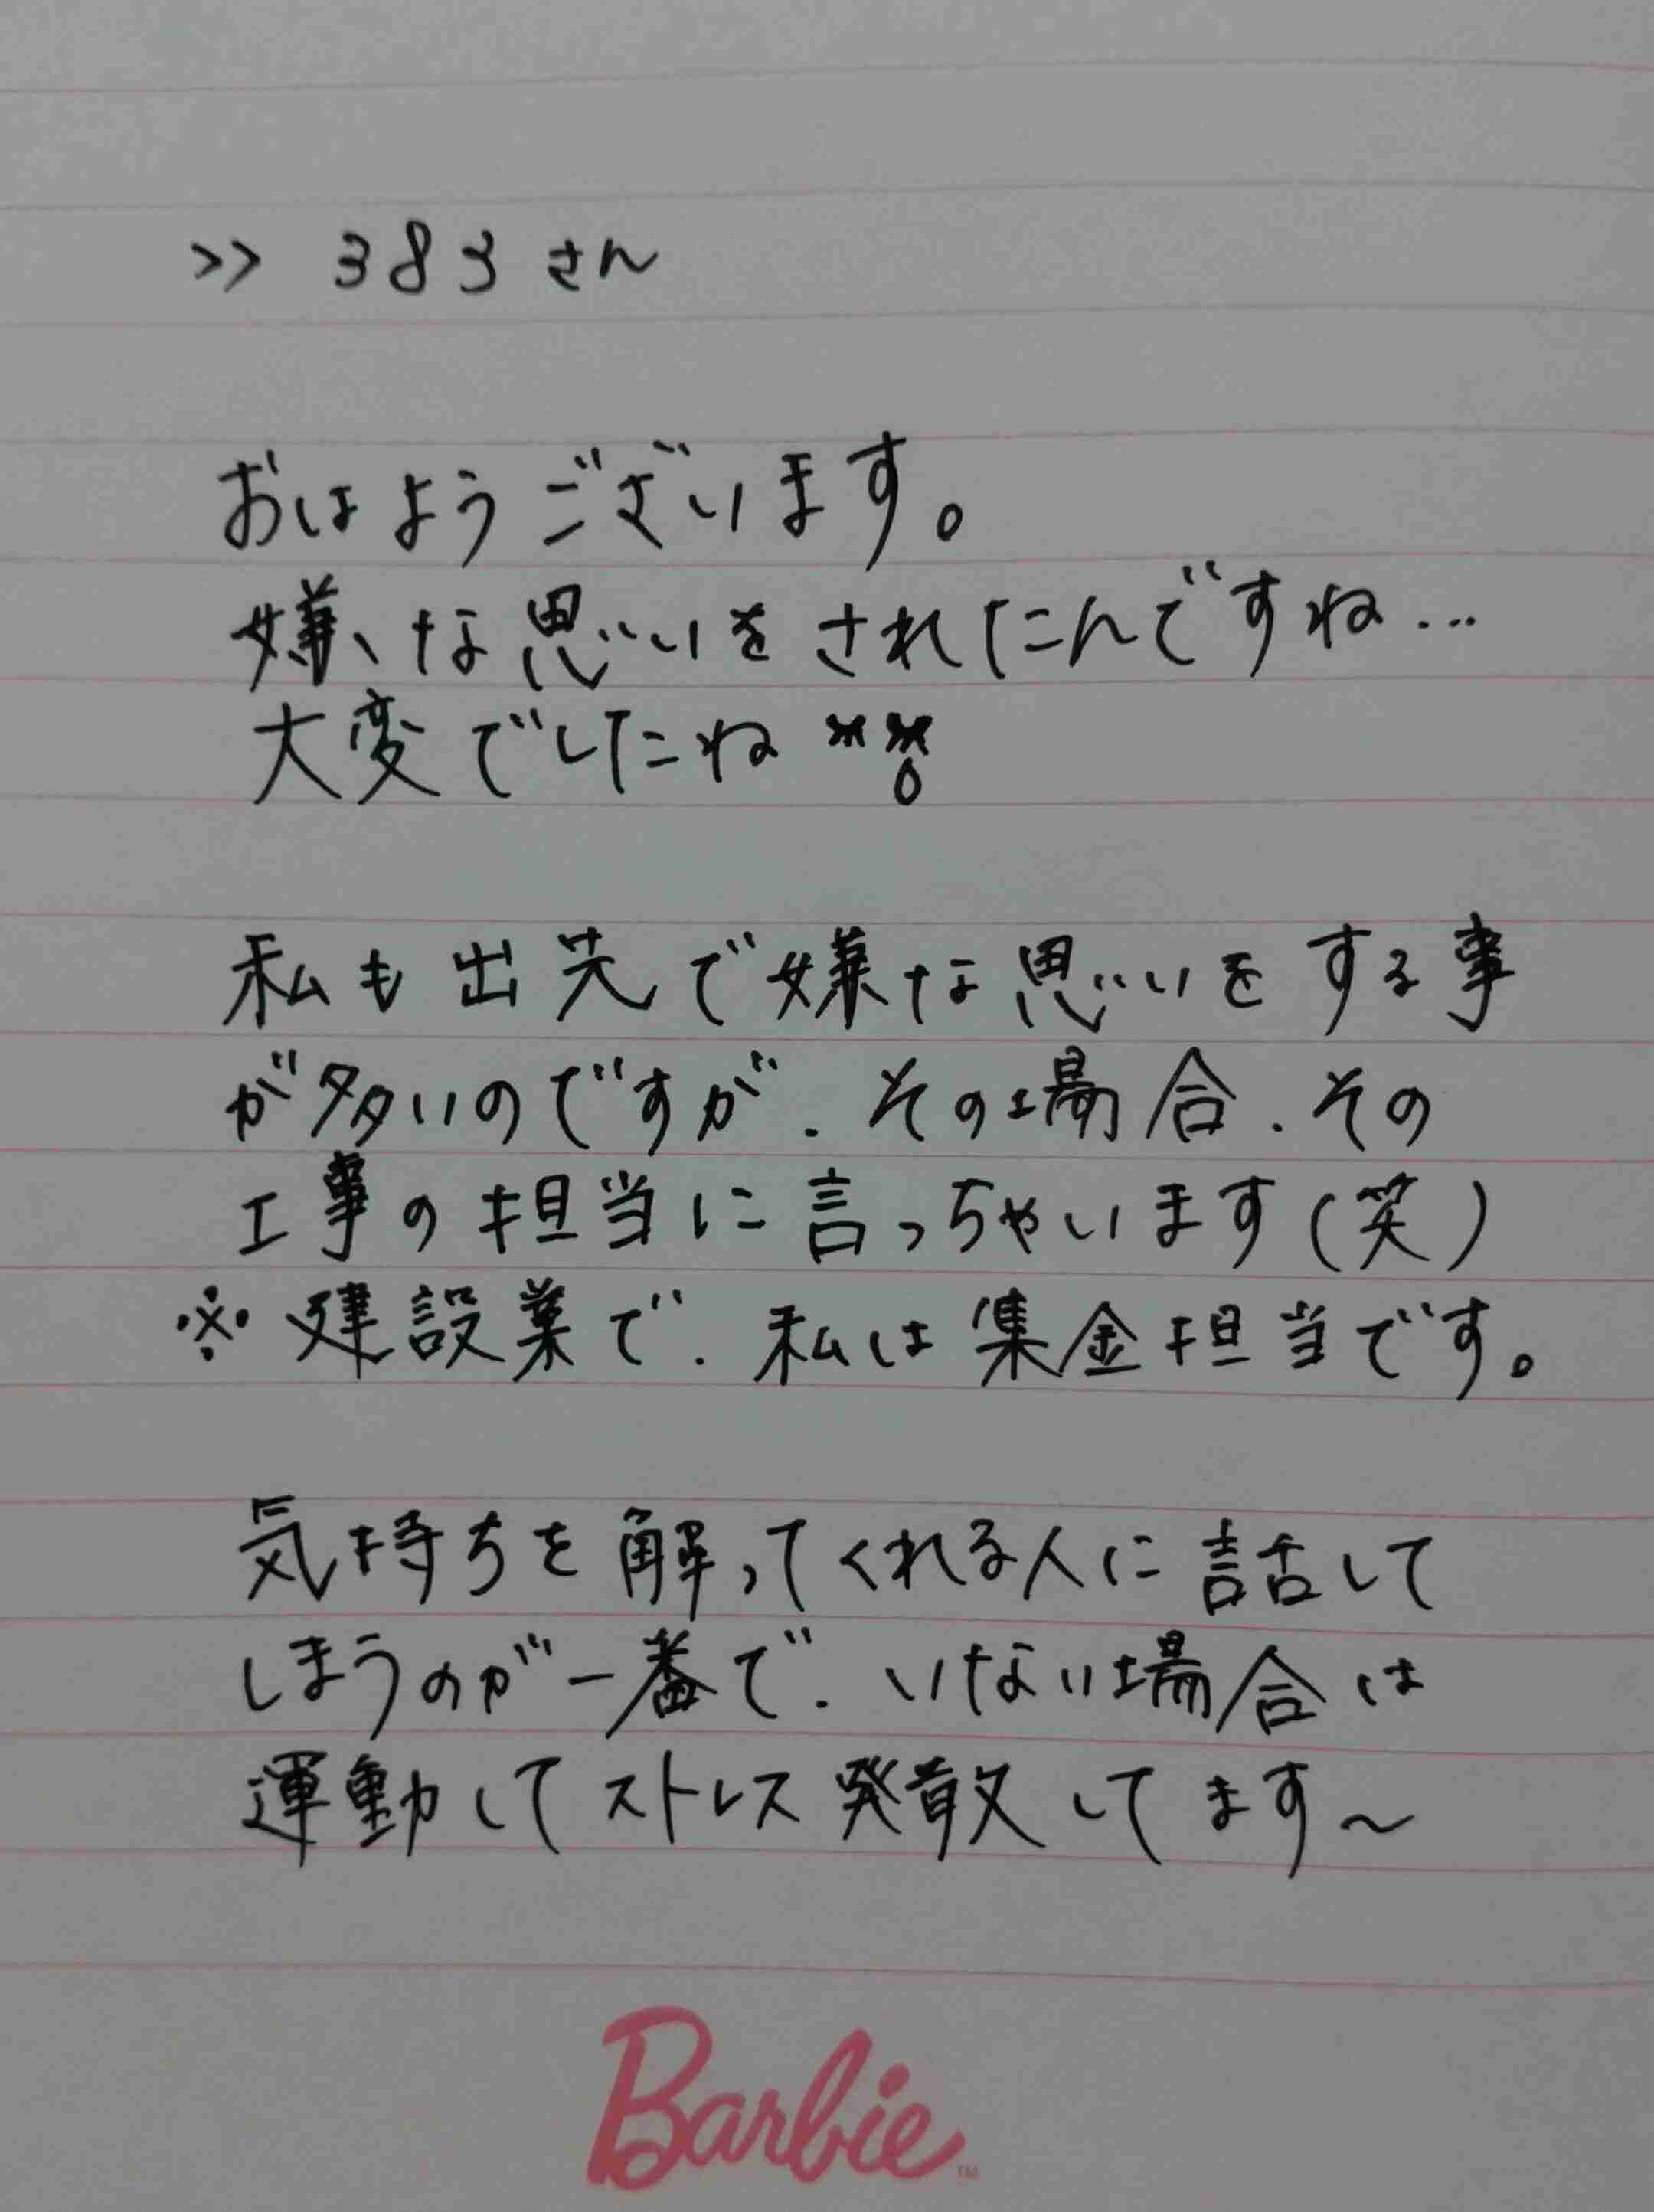 >> 383さん
おはようございます。
嫌な思いをされたんですね…
大変でしたね
私も出先で嫌な思いをする事
が多いのですが、その場合、その
工事の担当に言っちゃいます(笑)
※建設業で、私は集金担当です。
気持ちを解ってくれる人に話して
しまうのが一番で、いない場合は
運動してストレス発散してます～
Barbie™